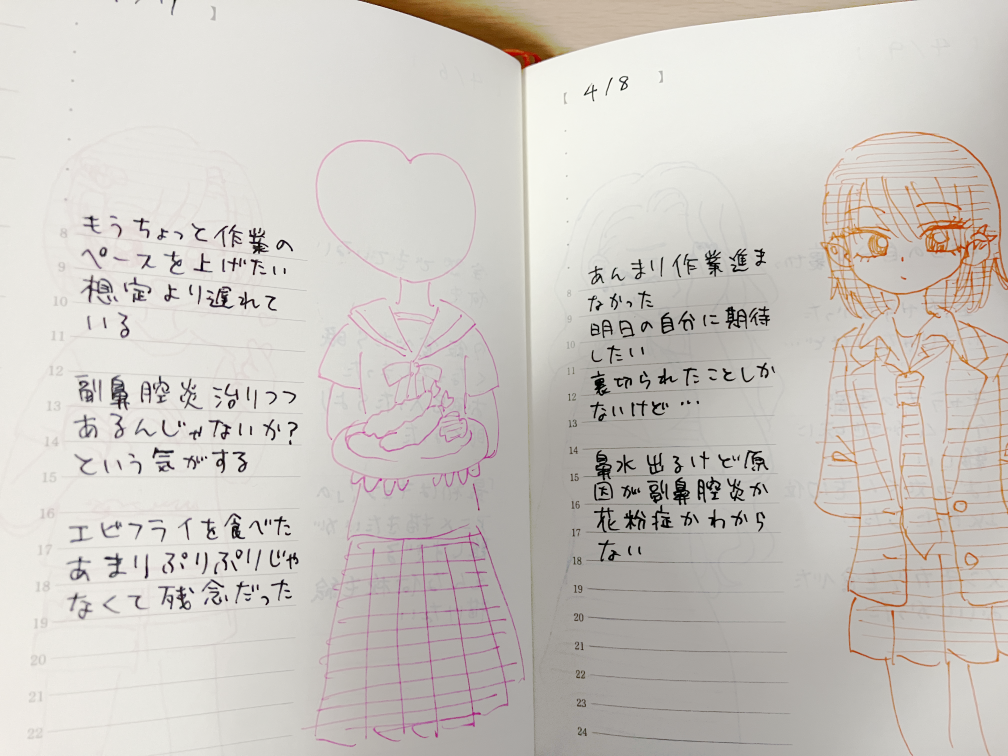 もうちょっと作業の
ペースを上げたい
想定より遅れて
いる
副鼻腔炎治りつつ
あるんじゃないか?
という気がする
エビフライを食べた
あまりぷりぷりじゃ
なくて残念だった
8
9
10
11
12
13
14
15
16
17
18
19
20
21
22
【 4/8 】
あんまり作業進ま
なかった
明日の自分に期待
したい
裏切られたことしか
ないけど…
鼻水出るけど原
因が副鼻腔炎か
花粉症かわから
ない
8
9
10
11
12
13
14
15
16
17
18
19
20
21
22
23
24